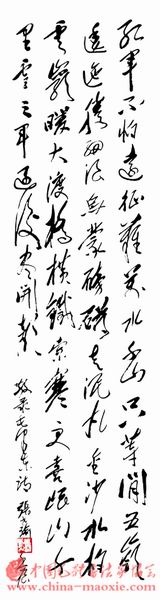 红军不怕远征难万水千山只等闲五岭
逶迤腾细浪乌蒙磅礴走泥丸金沙水拍
云崖暖大渡桥横铁索寒更喜岷山千
里雪三军过后尽开颜
敬录毛泽东诗 张